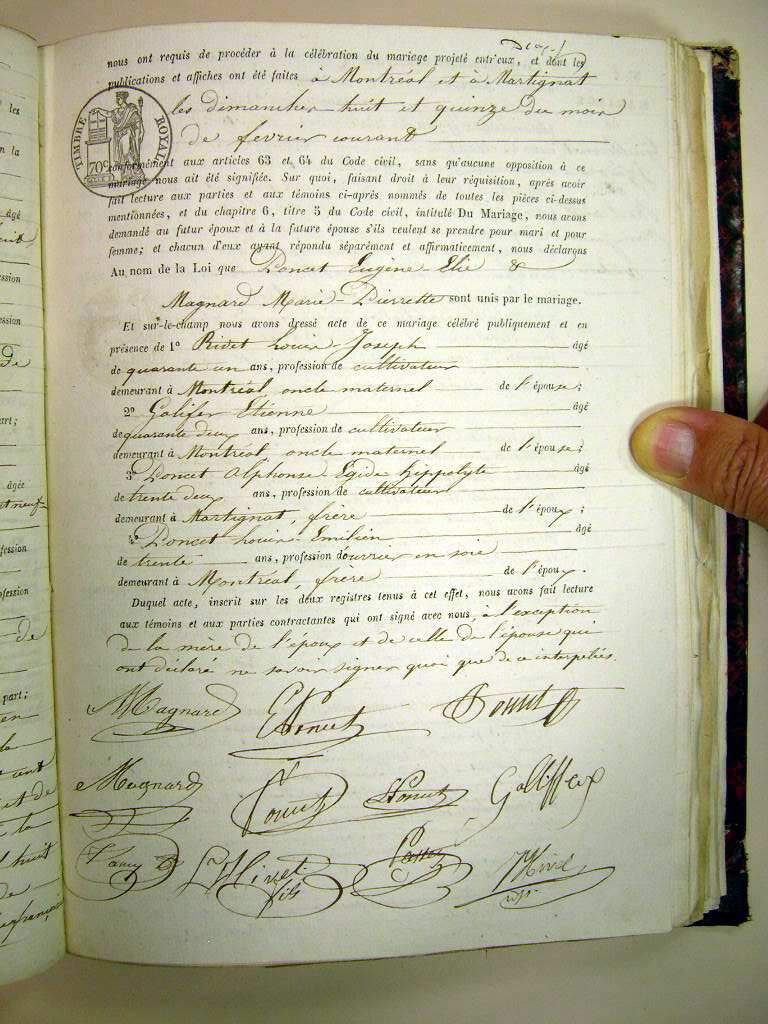 nous ont requis de procéder à la célébration du mariage projeté entr'eux, et dont les
publications et affiches ont été faites à Montréal et à Martignat
les dimanches huit et quinze du mois
de fevrier courant
TIMBRE ROYAL
70c
conformément aux articles 63 et 64 du Code civil, sans qu'aucune opposition à ce
mariage nous ait été signifiée. Sur quoi, faisant droit à leur réquisition, après avoir
fait lecture aux parties et aux témoins ci-après nommés de toutes les pièces ci-dessus
mentionnées, et du chapitre 6, titre 5 du Code civil, intitulé Du Mariage, nous avons
demandé au futur époux et à la future épouse s'ils veulent se prendre pour mari et pour
femme; et chacun d'eux ayant répondu séparément et affirmativement, nous déclarons
Au nom de la Loi que Poncet Eugène Elie &
Magnard Marie-Pierrette sont unis par le mariage.
Et sur-le-champ nous avons dressé acte de ce mariage célébré publiquement et en
présence de 1o Rivet Louis Joseph âgé
de quarante un ans, profession de cultivateur
demeurant à Montréal, oncle maternel de l'épouse;
2o Galifer Etienne âgé
de quarante deux ans, profession de cultivateur
demeurant à Montréal, oncle maternel de l'épouse;
3o Poncet Alphonse Egide hippolyte âgé
de trente deux ans, profession de cultivateur
demeurant à Martignat, frère de l'époux;
4o Poncet Louis Emilien âgé
de trente ans, profession d'ourrier en soie
demeurant à Montréal, frère de l'époux.
Duquel acte, inscrit sur les deux registres tenus à cet effet, nous avons fait lecture
aux témoins et aux parties contractantes qui ont signé avec nous, à l'exception
de la mère de l'époux et de celle de l'épouse qui
ont déclaré ne savoir signer quoi que de ce interpelés.
Magnard EPoncet Poncet
Magnard Poncet Poncet Galliffex
Rivet fils